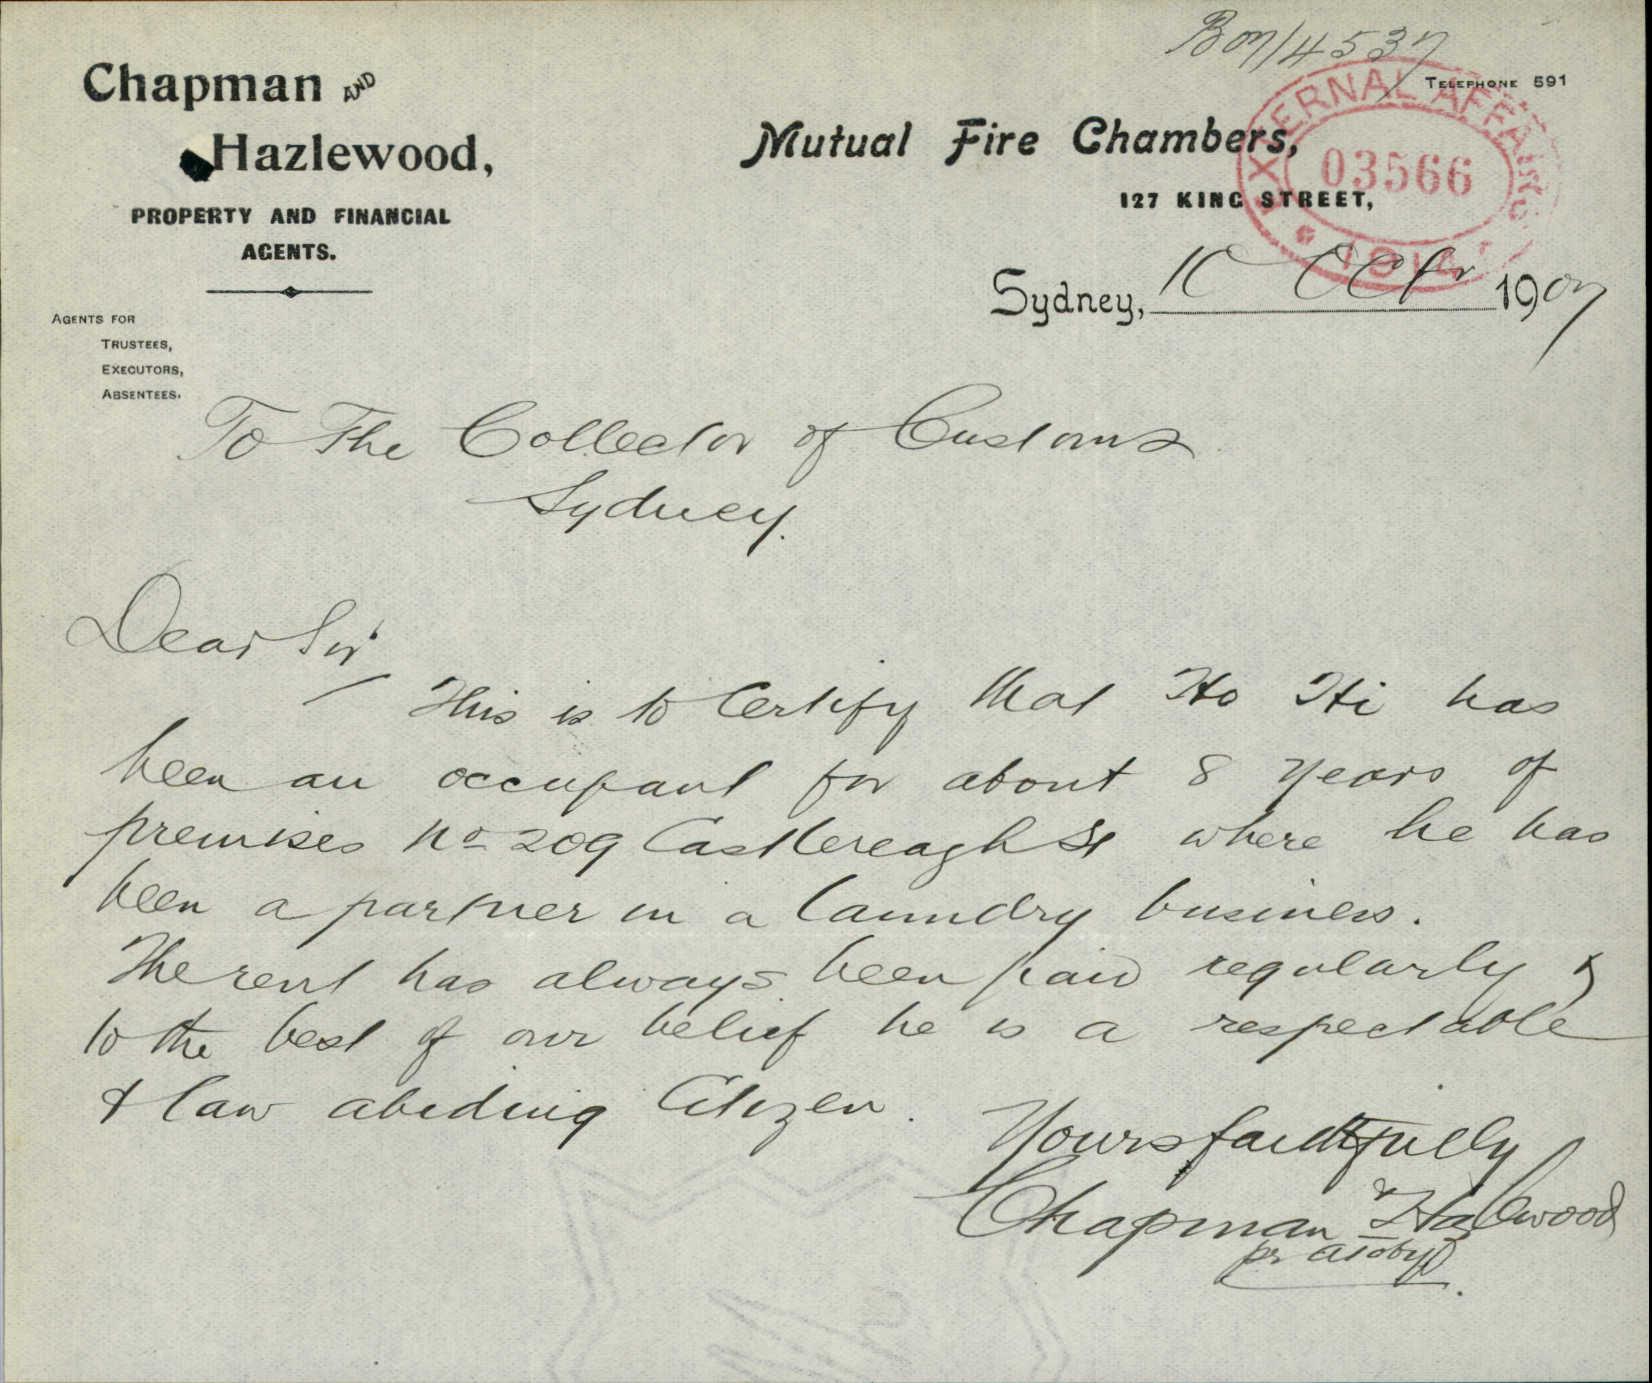 B07/4537
Chapman AND
Hazlewood,
PROPERTY AND FINANCIAL
AGENTS.
AGENTS FOR
TRUSTEES,
EXECUTORS,
ABSENTEES.
TELEPHONE 591
Mutual Fire Chambers,
127 KING STREET,
EXTERNAL AFFAIRS
03566
Sydney, 10 Octr 1907
To The Collector of Customs
Sydney.
Dear Sir
This is to Certify that Ho Hi has
been an occupant for about 8 years of
premises No 209 Castlereagh St where he has
been a partner in a laundry business.
The rent has always been paid regularly &
to the best of our belief he is a respectable
& law abiding Citizen.
Yours faithfully
Chapman & Hazlewood
pr